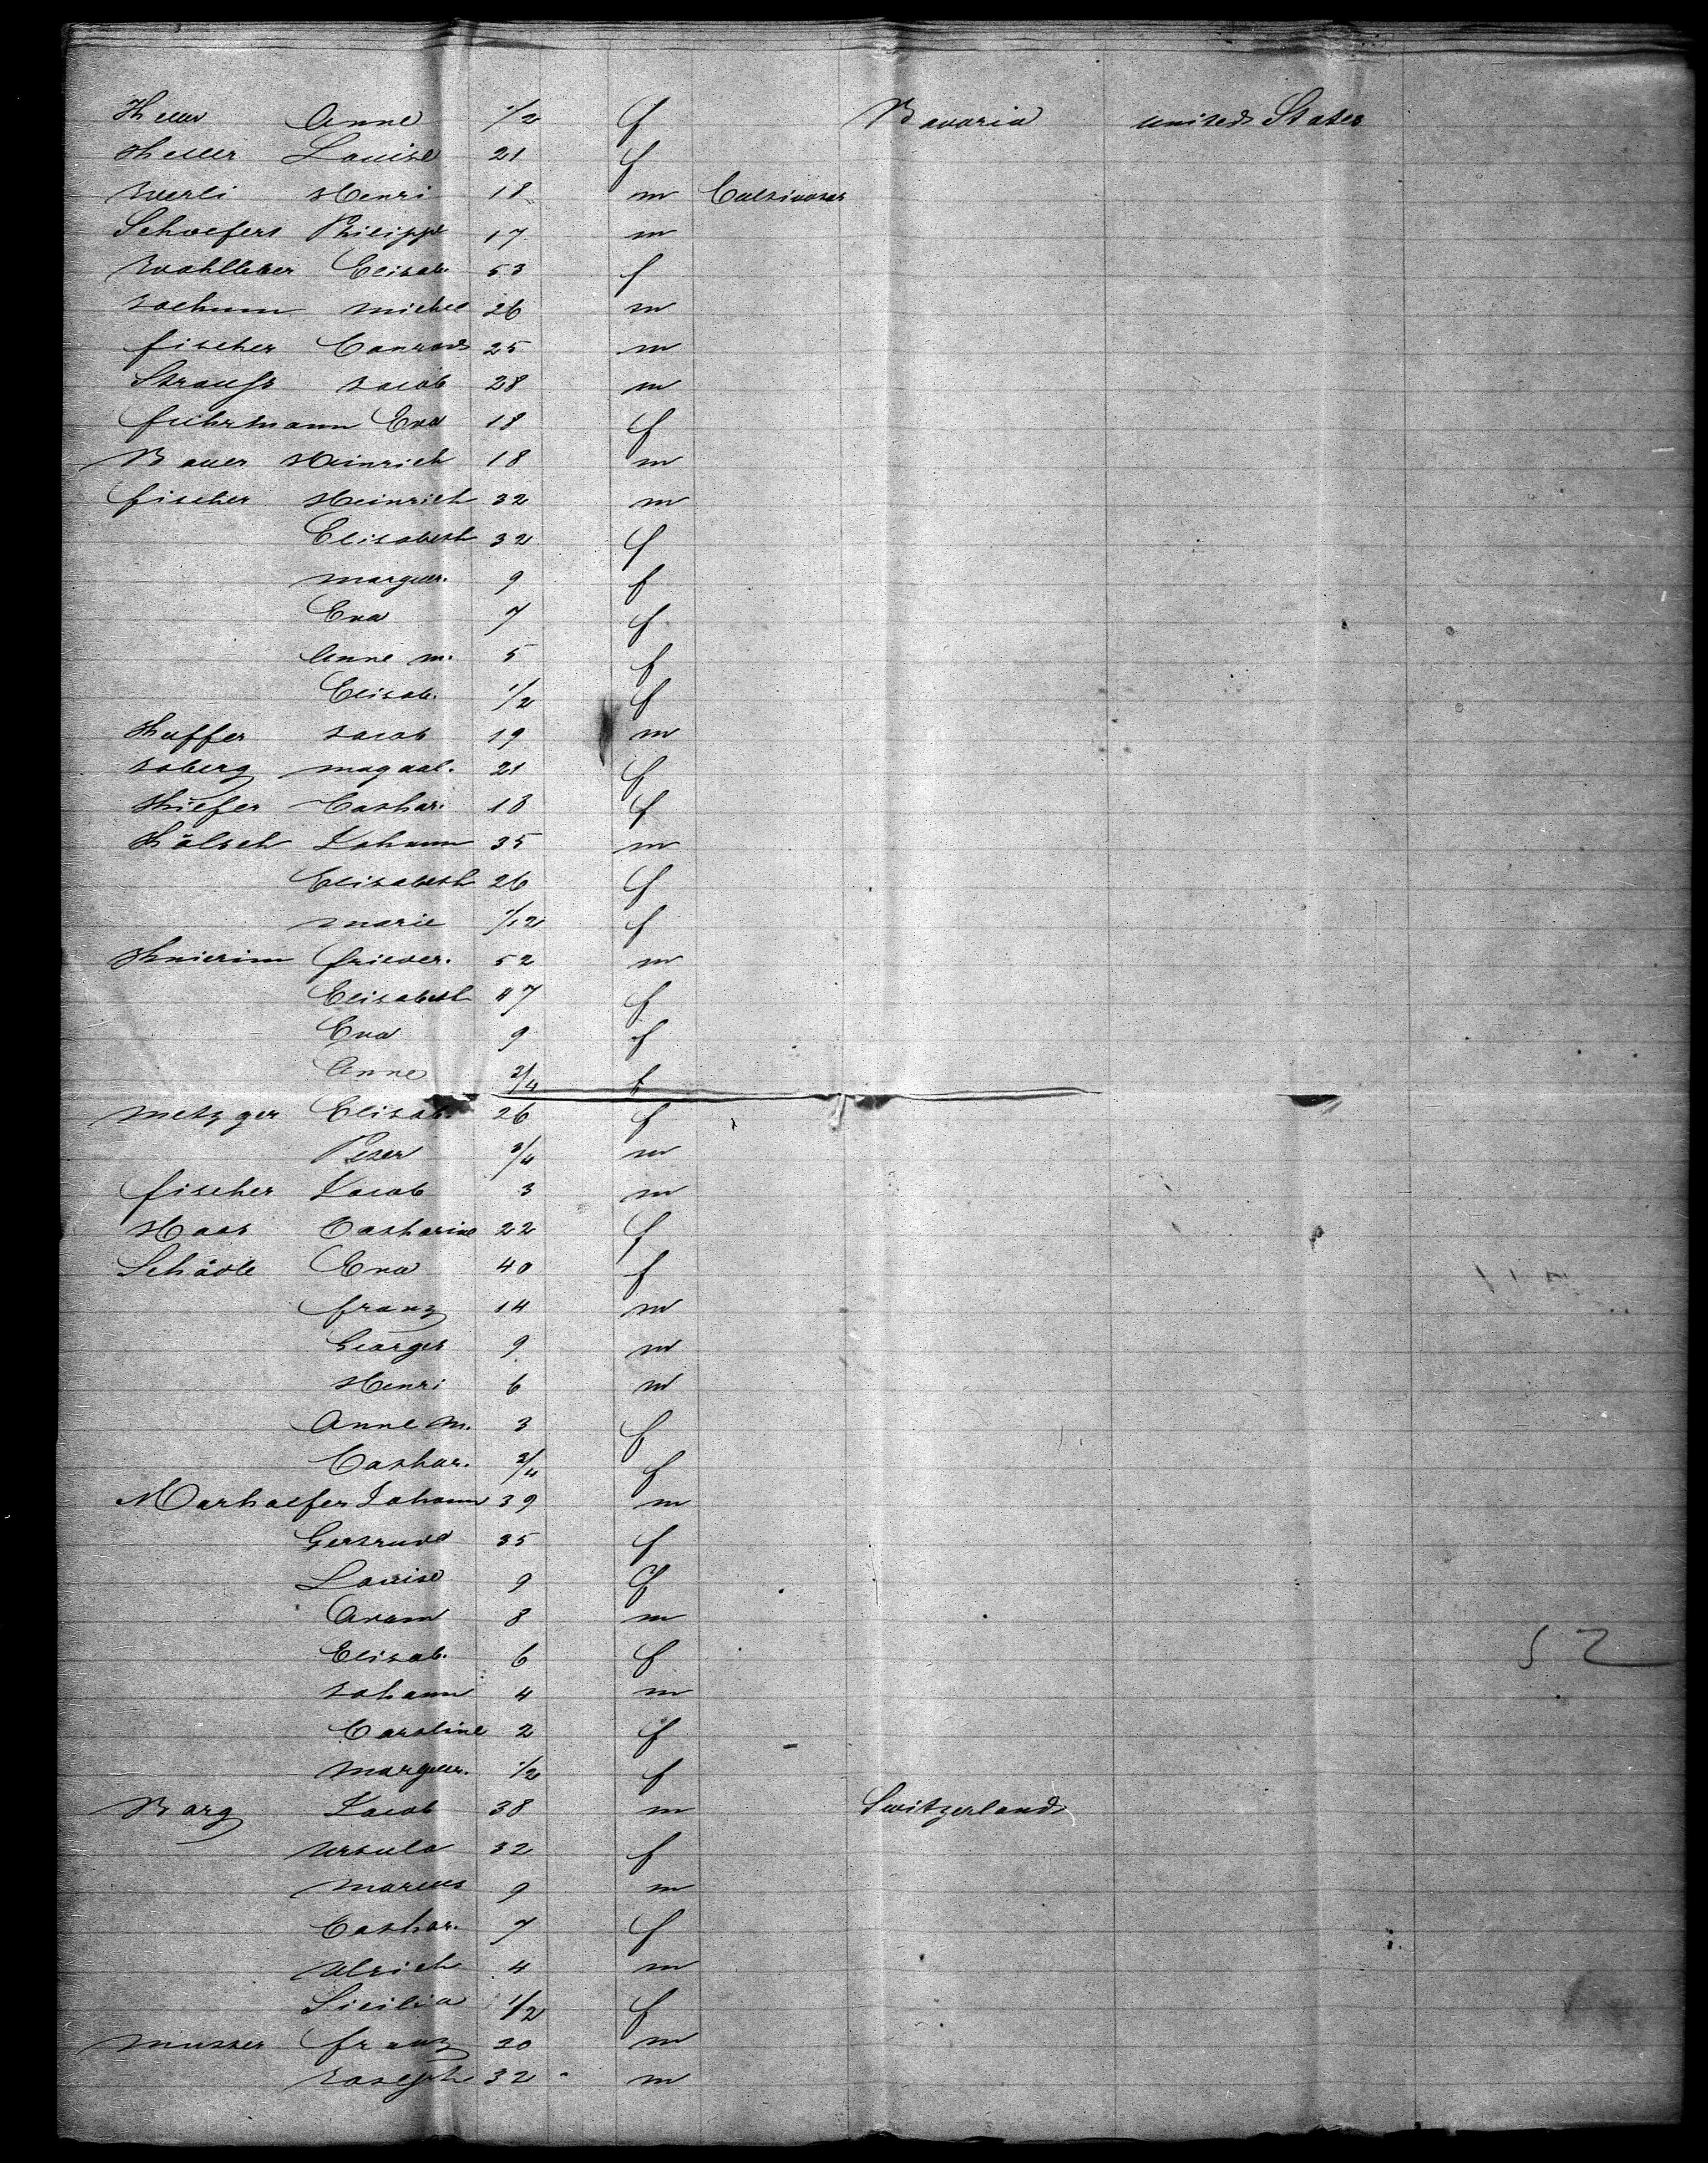 Keller Anne 1/2 f Bavaria united States
Keller Louise 21 f
Werli Henri 18 m Cultivator
Schaefers Philippe 17 m
Wohlleber Elisab. 53 f
Jochum Michel 26 m
fischer Conrad 25 m
Strauss Jacob 28 m
fuhrmann Eva 18 f
Bauer Heinrich 18 m
fischer Heinrich 32 m
Elisabeth 32 f
Marguer. 9 f
Eva 7 f
Anne M. 5 f
Elisab. 1/2 f
Kuffer Jacob 19 m
Joberg Magdal. 21 f
Kiefer Cathar. 18 f
Kölsch Johann 35 m
Elisabeth 26 f
Marie 1/12 f
Knierim frieder. 52 m
Elisabeth 47 f
Eva 9 f
Anne 3/4 f
Metzger Elisab. 26 f
Peter 3/4 m
fischer Jacob 3 m
Haas Catharine 22 f
Schädle Eva 40 f
franz 14 m
Georges 9 m
Henri 6 m
Anne M. 3 f
Cathar. 3/4 f
Marhoefer Johann 39 m
Gertrude 35 f
Louise 9 f
Adam 8 m
Elisab. 6 f
Johann 4 m
Caroline 2 f
Marguer. 1/2 f
Barg Jacob 38 m Switzerland
Ursula 32 f
Marcus 9 m
Cathar. 7 f
Ulrich 4 m
Sicilia 1/2 f
Musser franz 20 m
Joseph 32 m
52